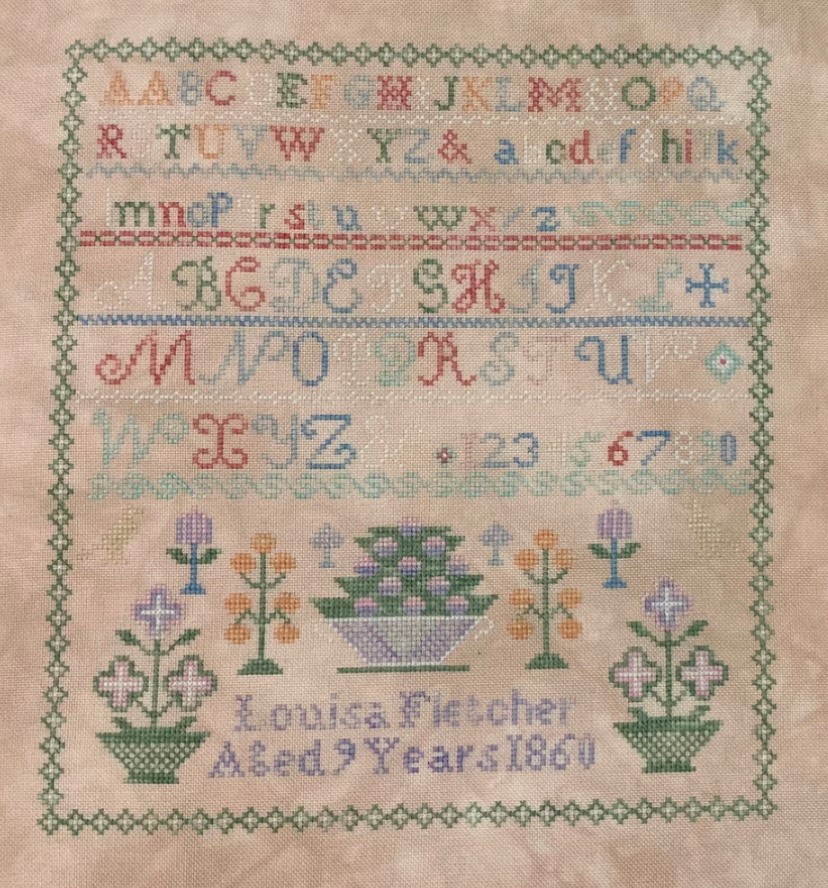 AABCDEFGHIJKLMNOPQ
RSTUVWXYZ& abcdefghijk
lmnopqrstuvwxyz
ABCDEFGHIJKL
MNOPQRSTUV
WXYZ& 1234567890
Louisa Fletcher
Aged 9 Years 1860